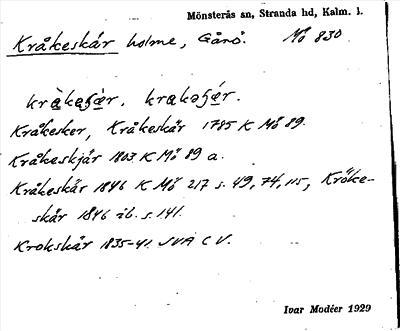 Mönsterås sn, Stranda hd, Kalm. l.
Kråkeskär holme, Gåsö. Nº 830
Kråkesker, Kråkeskär 1785 K Mö 89.
Kråkeskjär 1803 K Mö 89 a.
Kråkeskär 1846 K Mö 217 s. 49, 74, 115, Kröke-
skär 1846 ib. s. 141.
Krokskär 1835-41 SVA C V.
Ivar Modéer 1929